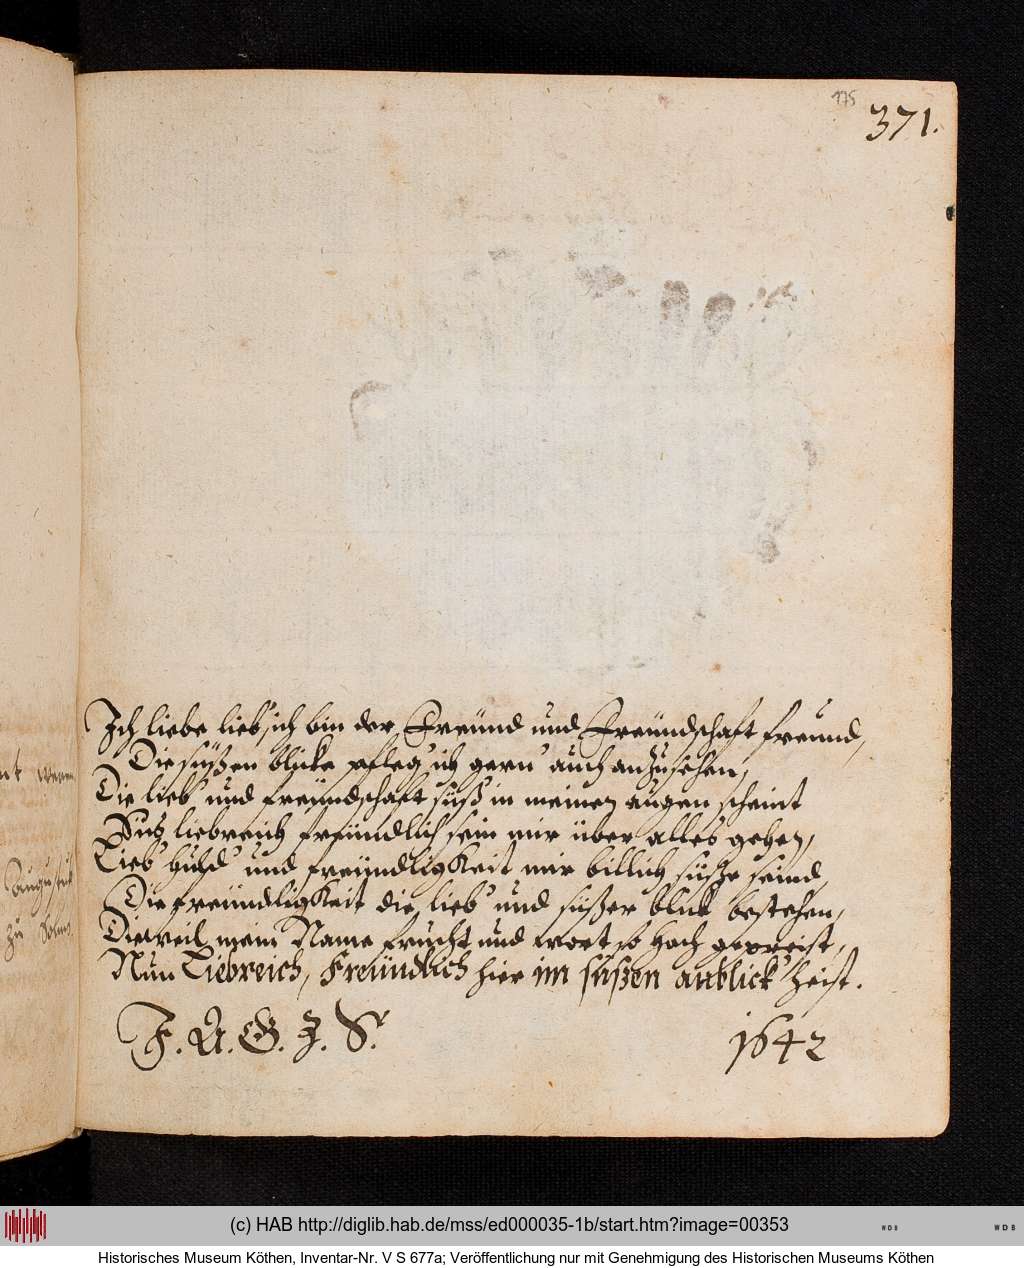 175
371.
Ich liebe lieb', ich bin der Freünd und Freündschaft freund,
Die süßen blicke pfleg' ich gern' auch anzusehen,
Die lieb' und freündschaft süß in meinen augen scheint
Das liebreich freündlich sein mir über alles gehen,
Lieb' huld' und freündligkeit mir billich süße seind,
Die freündligkeit die lieb' und süßer blick bestehen,
Dieweil mein Name frucht und wort so hoch gepreist,
Nun Liebreich, Freündlich hier im süßen anblick' heist.
F. A. G. Z. S.
1642
zu Solms
(c) HAB http://diglib.hab.de/mss/ed000035-1b/start.htm?image=00353
WDB
WDB
Historisches Museum Köthen, Inventar-Nr. V S 677a; Veröffentlichung nur mit Genehmigung des Historischen Museums Köthen